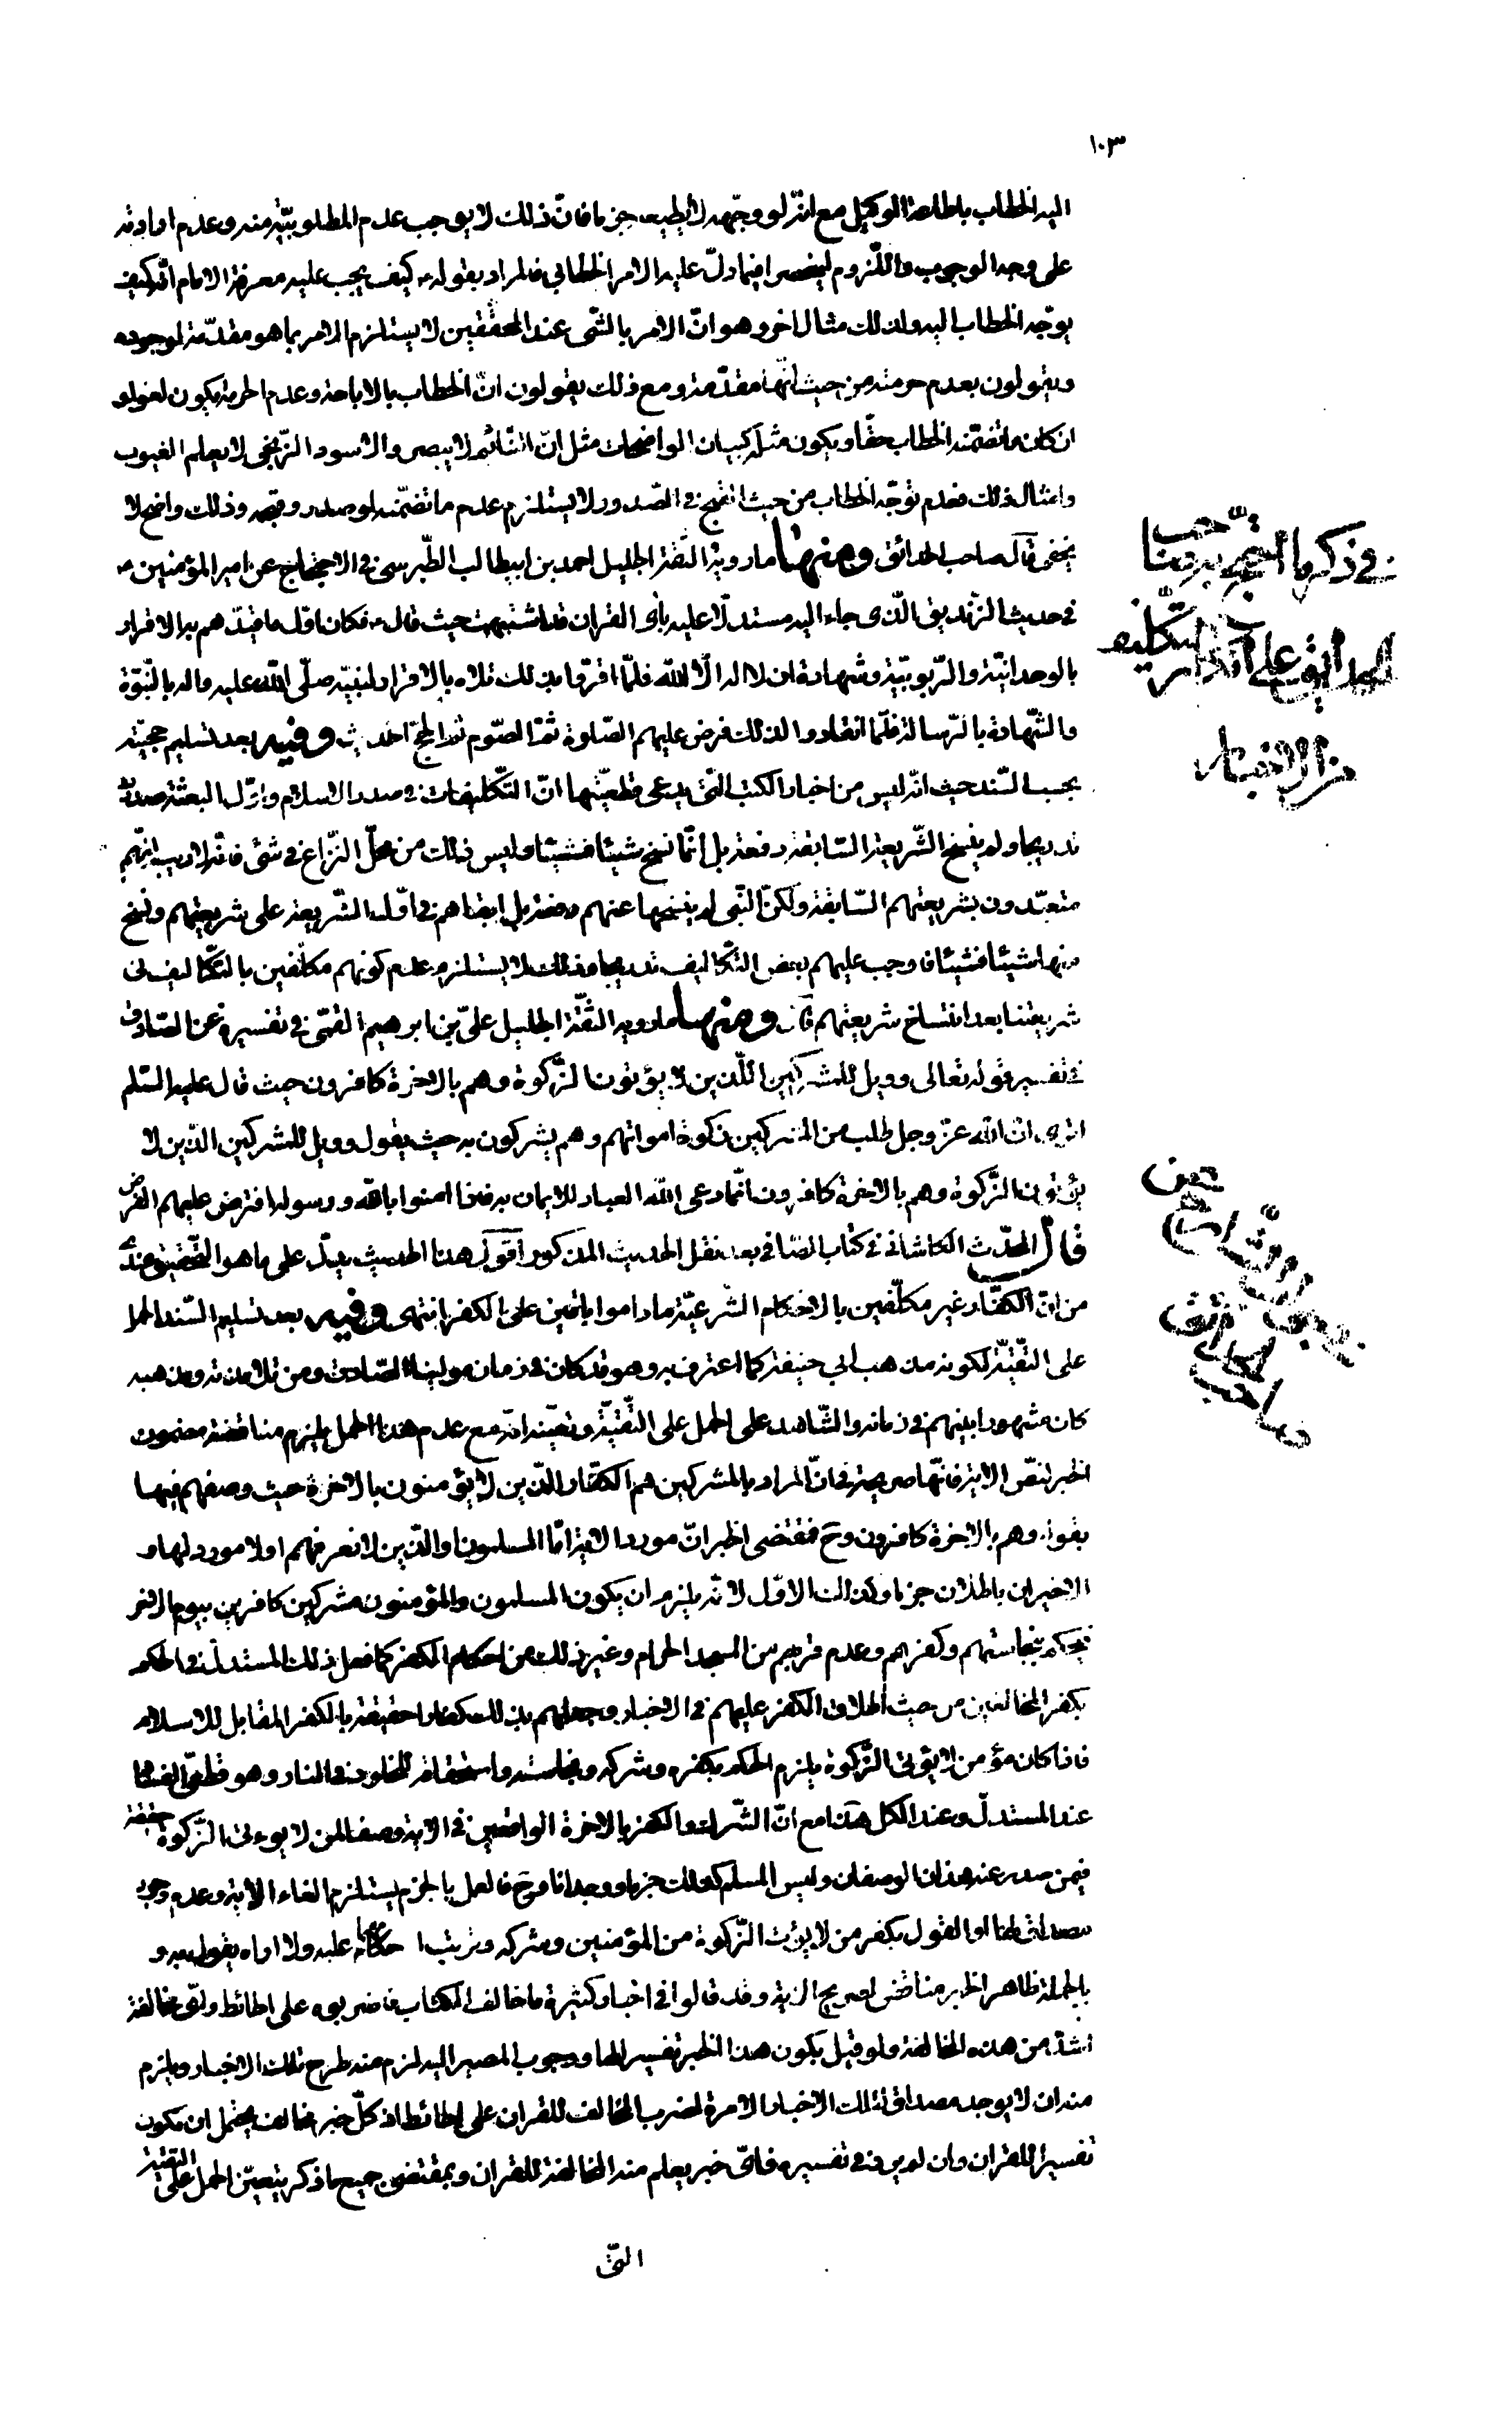 ١٠٣
اليه الخطاب باطاعة الوكيل مع انّه لو وجّهه لا يطيعه جزما فانّ ذلك لا يوجب عدم المطلوبيّة منه وعدم ارادته
على وجه الوجوب واللّزوم ليخصر فيما دلّ عليه الامر الخطابي فالمراد بقوله كيف يجب عليه معرفة الامام انّه كيف
يوجّه الخطاب اليه ولذلك مثال اخر وهو انّ الامر بالشّى عند المحقّقين لا يستلزم الامر بما هو مقدّمة لوجوده
ويقولون بعدم حرمته من حيث انّها مقدّمة ومع ذلك يقولون انّ الخطاب بالاباحة وعدم الحرمة يكون لغوا ولو
ان كان ما تضمّنه الخطاب حقّا ويكون مثله كبيان الواضحات مثل انّ النّائم لا يبصر والاسود الزّنجى لا يعلم الغيوب
وامثال ذلك فعدم توجّه الخطاب من حيث القبح فى الصّدور لا يستلزم عدم ما تضمّنه لو صدر وقبحه وذلك واضح لا
يخفى قال صاحب الحدائق ومنها ما رويه الثّقة الجليل احمد بن ابيطالب الطّبرسى فى الاحتجاج عن امير المؤمنين
فى حديث الزّنديق الّذى جاء اليه مستدلّا عليه بآى القران قد اشتبهت حيث قال فكان اوّل ما قيّدهم به الاقرار
بالوحدانيّة والرّبوبيّة وشهادة ان لا اله الّا اللّه فلمّا اقرّوا بذلك تلاه بالاقرار لنبيّه صلّى اللّه عليه واله بالنّبوّة
والشّهادة بالرّسالة فلمّا انقادوا لذلك فرض عليهم الصّلوة ثمّ الصّوم ثمّ الحجّ الحديث وفيه بعد تسليم حجيّته
بحسب السّند حيث انّه ليس من اخبار الكتب الّتى يدعى قطعيّتها انّ التّكليفات فى صدر الاسلام واوّل البعثة صدرت
تدريجا ولم ينسخ الشّريعة السّابقة دفعة بل انّما نسخ شيئا فشيئا وليس ذلك من محلّ النّزاع فى شئ فانّه لا ريب انّهم
متعبّدون بشريعتهم السّابقة ولكنّ النّبى لم ينسخها عنهم دفعة بل ابقاهم فى اوّل الشّريعة على شريعتهم ونسخ
منها شيئا فشيئا فاوجب عليهم بعض التّكاليف تدريجا وذلك لا يستلزم عدم كونهم مكلّفين بالتّكاليف فى
شريعتنا بعد انتساخ شريعتهم قال ومنها ما رويه الثّقة الجليل علىّ بن ابرهيم القمّى فى تفسيره عن الصّادق
فى تفسير قوله تعالى وويل للمشركين الّذين لا يؤتون الزّكوة وهم بالاخرة كافرون حيث قال عليه السّلم
اترى انّ اللّه عزّ وجل طلب من المشركين زكوة اموالهم وهم يشركون به حيث يقول وويل للمشركين الّذين لا
يؤتون الزّكوة وهم بالاخرة كافرون انّما دعى اللّه العباد للايمان به فاذا امنوا باللّه ورسوله افترض عليهم الفرض
قال المحدّث الكاشانى فى كتاب الصّافى بعد نقل الحديث المذكور اقول هذا الحديث يدلّ على ما هو التّحقيق عندى
من انّ الكفّار غير مكلّفين بالاحكام الشّرعيّة ما داموا باقين على الكفر انتهى وفيه بعد تسليم السّند الحمل
على التّقيّة لكونه مذهب ابى حنيفة كما اعترف به وهو قد كان فى زمان مولينا الصّادق ومن تلامذته ومذهبه
كان مشهورا بينهم فى زمانه والشّاهد على الحمل على التّقيّة وتعيّنه انّه مع عدم هذا الحمل يلزم مناقضة مضمون
الخبر لنصّ الاية فانّها صريحة فى انّ المراد بالمشركين هم الكفّار الّذين لا يؤمنون بالاخرة حيث وصفهم فيها
بقوله وهم بالاخرة كافرون وح فمقتضى الخبر انّ مورد الاية امّا المسلمون والّذين لا نعرفهم او لا مورد لها و
الاخيران باطلان جزما وكذلك الاوّل لانّه يلزم ان يكون المسلمون والمؤمنون مشركين كافرين بيوم الاخر
فيحكم بنجاستهم وكفرهم وعدم قربهم من المسجد الحرام وغير ذلك من احكام الكفر كما فعل ذلك المستدلّ فى الحكم
بكفر المخالفين من حيث اطلاق الكفر عليهم فى الاخبار وجعلهم بذلك كفّارا حقيقة بالكفر المقابل للاسلام
فاذا كان مؤمن لا يؤتى الزّكوة يلزم الحكم بكفره وشركه ونجاسته واستحقاقه للخلود فى النار وهو قطعىّ الفساد
عند المستدلّ وعند الكل هذا مع انّ الشّرك والكفر بالاخرة الواقعين فى الاية وصف لمن لا يوءتى الزّكوة حقيقة
فيمن صدر عنه هذان الوصفان وليس المسلم كذلك جزما ووجدانا وح فالعمل بالجزم يستلزم الغاء الاية وعدم وجود
مصداق لها او القول بكفر من لا يؤت الزّكوة من المؤمنين وشركه وترتيب احكامهما عليه ولا اراه يقول به و
بالجملة ظاهر الخبر مناقض لصريح الاية وقد قالوا فى اخبار كثيرة ما خالف الكتاب فاضربوه على الحائط واىّ مخالفة
اشدّ من هذه المخالفة ولو قيل يكون هذا الخبر تفسيرا لها ووجوب المصير اليه لزم منه طرح تلك الاخبار ويلزم
منه ان لا يوجد مصداق لتلك الاخبار الامرة لضرب المخالف للقران على الحائط اذ كلّ خبر مخالف يحتمل ان يكون
تفسيرا للقران وان لم يرد فى تفسيره فاىّ خبر يعلم منه المخالفة للقران وبمقتضى جميع ما ذكر يتعيّن الحمل على التقيّة
الّتى
فى ذكر ما استشهد به صاحب
الحدائق على انكار تكليف
من الاخبار
صاحب الحدائق